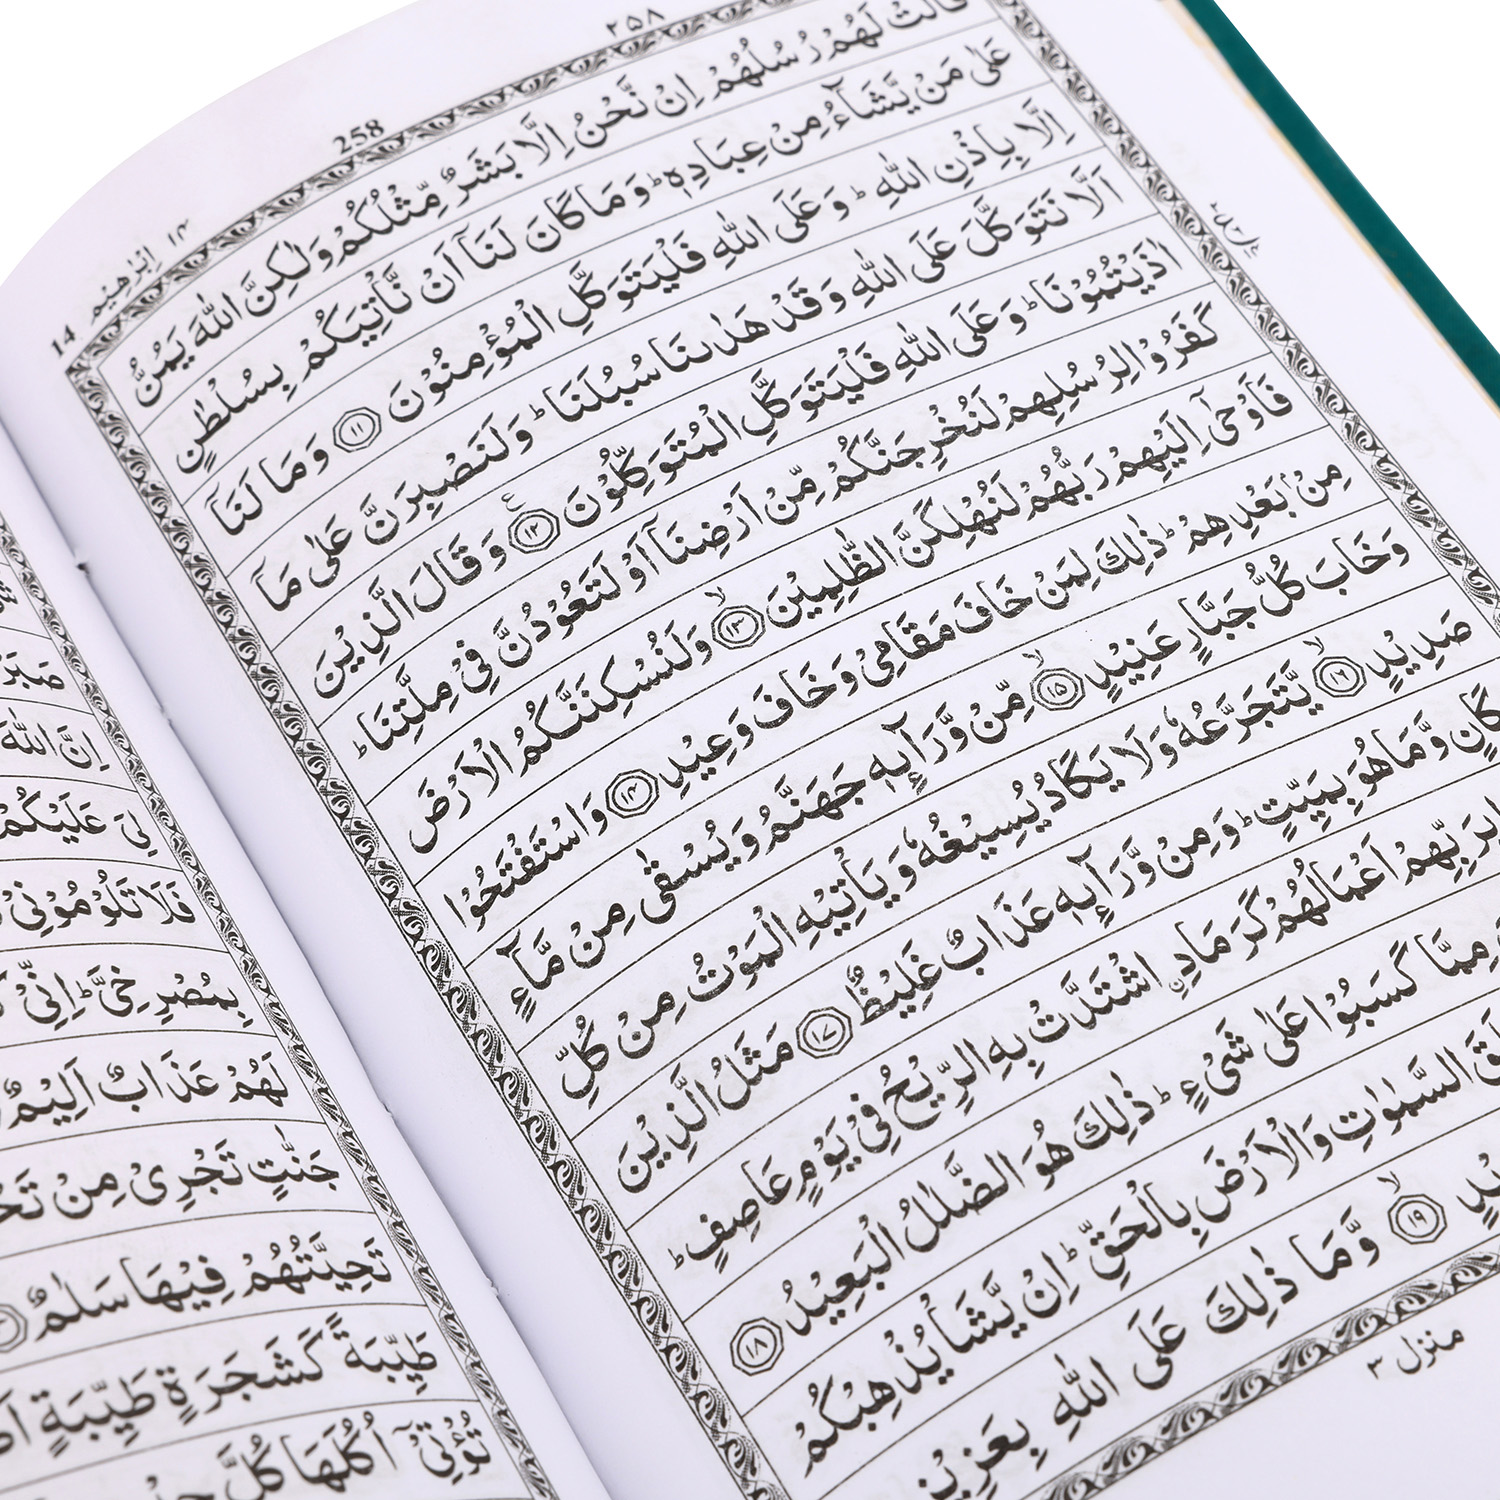 ٢٥٨
258
ابرٰهیم ١٤
14
قَالَتْ لَهُمْ رُسُلُهُمْ اِنْ نَّحْنُ اِلَّا بَشَرٌ مِّثْلُكُمْ وَلٰكِنَّ اللّٰهَ يَمُنُّ
عَلٰى مَنْ يَّشَآءُ مِنْ عِبَادِهٖ ؕ وَمَا كَانَ لَنَاۤ اَنْ نَّاْتِيَكُمْ بِسُلْطٰنٍ
اِلَّا بِاِذْنِ اللّٰهِ ؕ وَعَلَى اللّٰهِ فَلْيَتَوَكَّلِ الْمُؤْمِنُوْنَ ١١ وَمَا لَنَاۤ
اَلَّا نَتَوَكَّلَ عَلَى اللّٰهِ وَقَدْ هَدٰىنَا سُبُلَنَا ؕ وَلَنَصْبِرَنَّ عَلٰى مَاۤ
اٰذَيْتُمُوْنَا ؕ وَعَلَى اللّٰهِ فَلْيَتَوَكَّلِ الْمُتَوَكِّلُوْنَ ١٢ ع وَقَالَ الَّذِيْنَ
كَفَرُوْا لِرُسُلِهِمْ لَنُخْرِجَنَّكُمْ مِّنْ اَرْضِنَاۤ اَوْ لَتَعُوْدُنَّ فِيْ مِلَّتِنَا ؕ
فَاَوْحٰۤى اِلَيْهِمْ رَبُّهُمْ لَنُهْلِكَنَّ الظّٰلِمِيْنَ ١٣ لا وَلَنُسْكِنَنَّكُمُ الْاَرْضَ
مِنْۢ بَعْدِهِمْ ؕ ذٰلِكَ لِمَنْ خَافَ مَقَامِيْ وَخَافَ وَعِيْدِ ١٤ وَاسْتَفْتَحُوْا
وَخَابَ كُلُّ جَبَّارٍ عَنِيْدٍ ١٥ لا مِّنْ وَّرَآئِهٖ جَهَنَّمُ وَيُسْقٰى مِنْ مَّآءٍ
صَدِيْدٍ ١٦ لا يَّتَجَرَّعُهٗ وَلَا يَكَادُ يُسِيْغُهٗ وَيَاْتِيْهِ الْمَوْتُ مِنْ كُلِّ
مَكَانٍ وَّمَا هُوَ بِمَيِّتٍ ؕ وَمِنْ وَّرَآئِهٖ عَذَابٌ غَلِيْظٌ ١٧ مَثَلُ الَّذِيْنَ
بِرَبِّهِمْ اَعْمَالُهُمْ كَرَمَادِ ࣙاشْتَدَّتْ بِهِ الرِّيْحُ فِيْ يَوْمٍ عَاصِفٍ ؕ
مِمَّا كَسَبُوْا عَلٰى شَيْءٍ ؕ ذٰلِكَ هُوَ الضَّلٰلُ الْبَعِيْدُ ١٨
السَّمٰوٰتِ وَالْاَرْضَ بِالْحَقِّ ؕ اِنْ يَّشَاْ يُذْهِبْكُمْ
١٩ لا وَّمَا ذٰلِكَ عَلَى اللّٰهِ بِعَزِيْزٍ
منزل ٣
اِنَّ اللّٰهَ
لِيَ عَلَيْكُمْ
فَلَا تَلُوْمُوْنِيْ
بِمُصْرِخِيَّ ؕ اِنِّيْ
لَهُمْ عَذَابٌ اَلِيْمٌ
جَنّٰتٍ تَجْرِيْ مِنْ
تَحِيَّتُهُمْ فِيْهَا سَلٰمٌ
طَيِّبَةً كَشَجَرَةٍ طَيِّبَةٍ
تُؤْتِيْۤ اُكُلَهَا كُلَّ